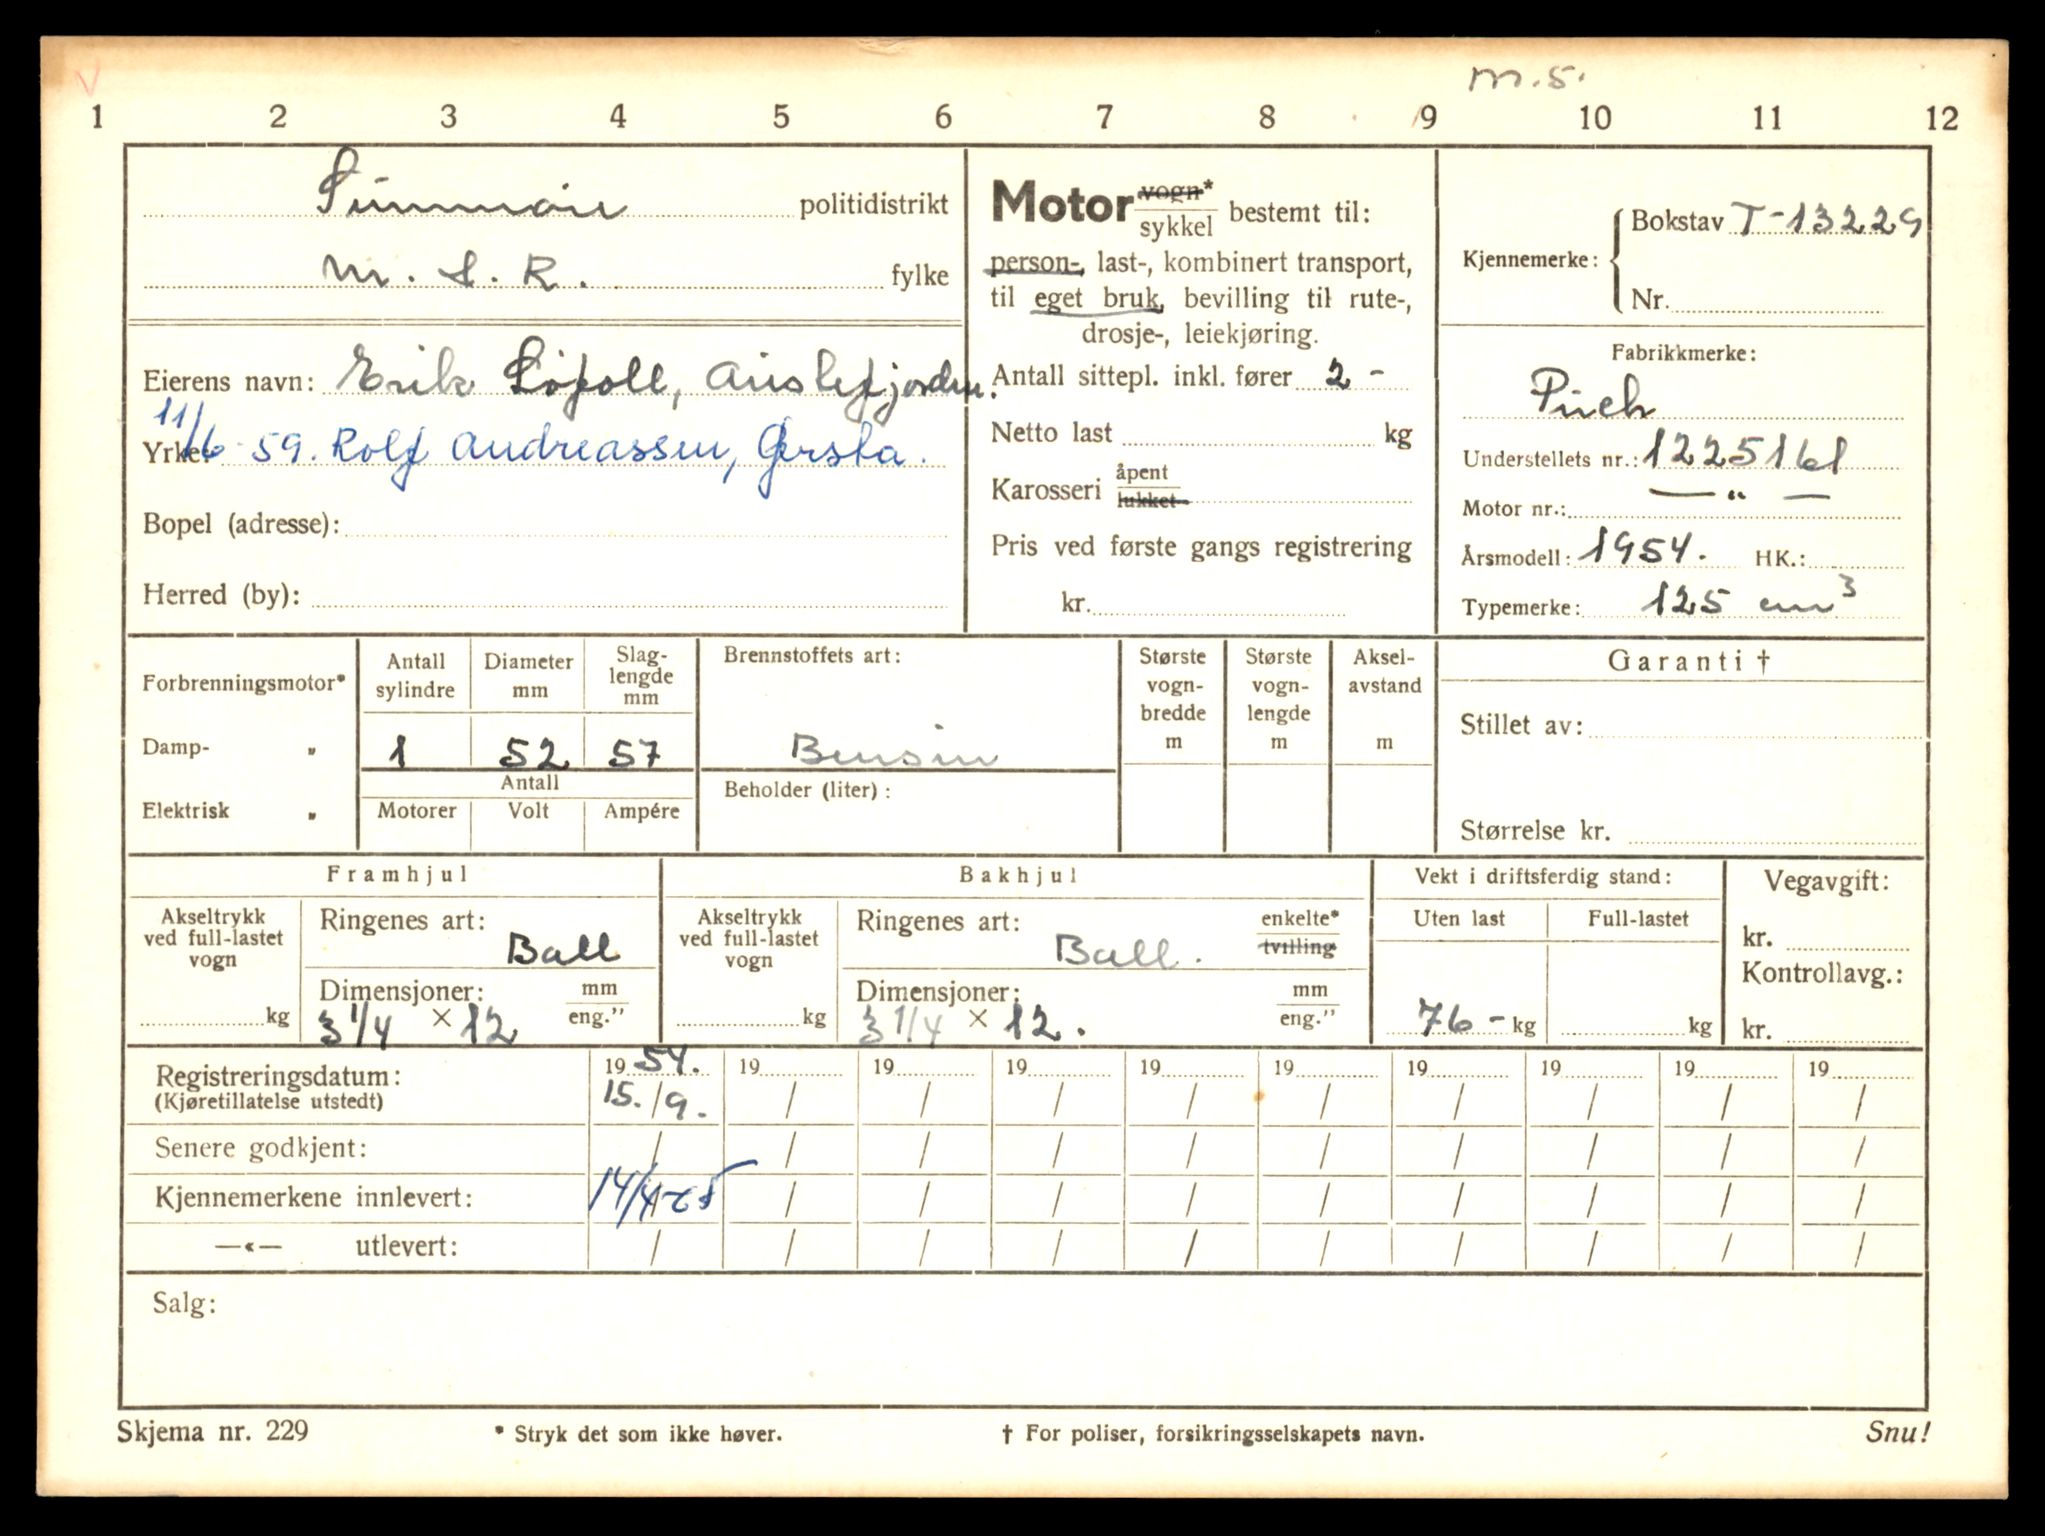 m.s.
1 2 3 4 5 6 7 8 9 10 11 12
Sunnmøre politidistrikt
M. & R. fylke
Eierens navn: Erik Løfoll, Austefjorden.
Yrke: 11/6-59. Rolf Andreassen, Ørsta.
Bopel (adresse):
Herred (by):
Motor vogn* sykkel bestemt til:
person-, last-, kombinert transport,
til eget bruk, bevilling til rute-,
drosje-, leiekjøring.
Antall sittepl. inkl. fører 2 -
Netto last kg
Karosseri åpent lukket
Pris ved første gangs registrering
kr.
Kjennemerke: Bokstav T-13229
Nr.
Fabrikkmerke:
Puch
Understellets nr.: 1225161
Motor nr.: — " —
Årsmodell: 1954. HK.:
Typemerke: 125 cm3
Forbrenningsmotor*
Damp- "
Elektrisk "
Antall sylindre
Diameter mm
Slag-lengde mm
1 52 57
Antall
Motorer Volt Ampére
Brennstoffets art:
Bensin
Beholder (liter):
Største vogn-bredde m
Største vogn-lengde m
Aksel-avstand m
Garanti †
Stillet av:
Størrelse kr.
Framhjul
Akseltrykk ved full-lastet vogn
kg
Ringenes art: Ball
Dimensjoner: mm eng."
3 1/4 × 12
Bakhjul
Akseltrykk ved full-lastet vogn
kg
Ringenes art: Ball. enkelte* tvilling
Dimensjoner: mm eng."
3 1/4 × 12.
Vekt i driftsferdig stand:
Uten last Full-lastet
76 - kg kg
Vegavgift:
kr.
Kontrollavg.:
kr.
Registreringsdatum: 1954. 19 19 19 19 19 19 19 19 19
(Kjøretillatelse utstedt) 15./9. / / / / / / / / /
Senere godkjent: / / / / / / / / / /
Kjennemerkene innlevert: 14/4-65 / / / / / / / / /
—«— utlevert: / / / / / / / / / /
Salg:
Skjema nr. 229 * Stryk det som ikke høver. † For poliser, forsikringsselskapets navn. Snu!